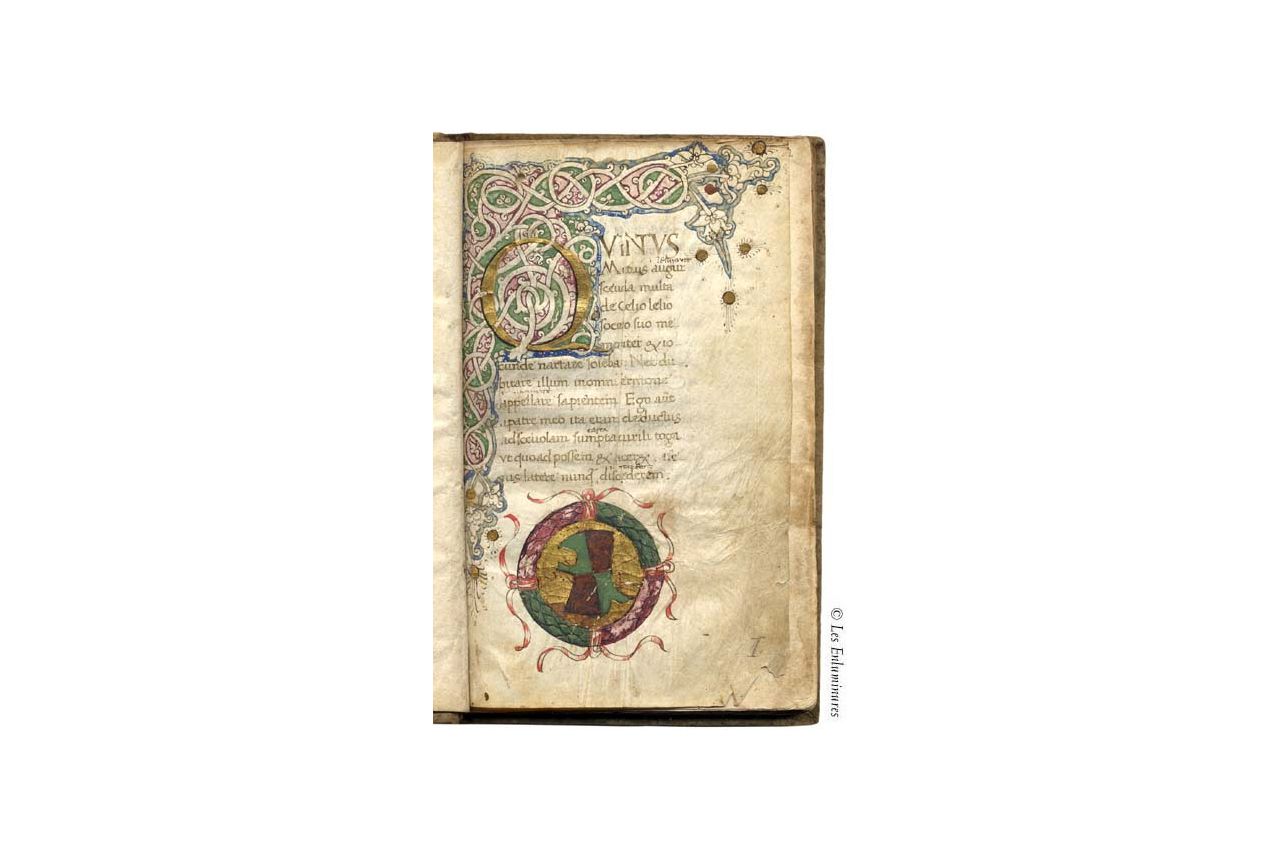 QVINTVS
Mutius augur
sceuola multa
de Celio lelio
socero suo me
moriter & io
cunde narrare solebat. Nec du
bitare illum inomni sermone
appellare sapientem. Ego aut
apatre meo ita eram deductus
adsceuolam sumpta uirili toga
vt quoad possem &
ius latere nunq discederem.
I
© Les Enluminures